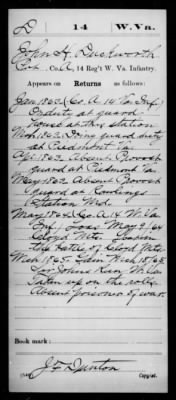 D 14 W. Va.
John H. Duckworth
Co. A, 14 Reg't W. Va. Infantry.
Appears on Returns as follows:
Jan. 1863 (Co. A 14 Va Inf)
On duty at guard
at other station
Nov. 1862 Doing guard duty
at Piedmont Va
1863 Absent Provost
guard at Piedmont Va
May 1862 Absent Provost
Guard at Rawlings
Station Md.
May 1864 (Co. A 14 W. Va
Inf) Loss May 9/64
Cloyd Mtn.
the battle of Cloyd Mtn
Mch 1865. Gain Mch 18/65
Johns Run W. Va
Taken up on the rolls
Absent prisoner of war.
Book mark:
J. F. Danton
Copyist.